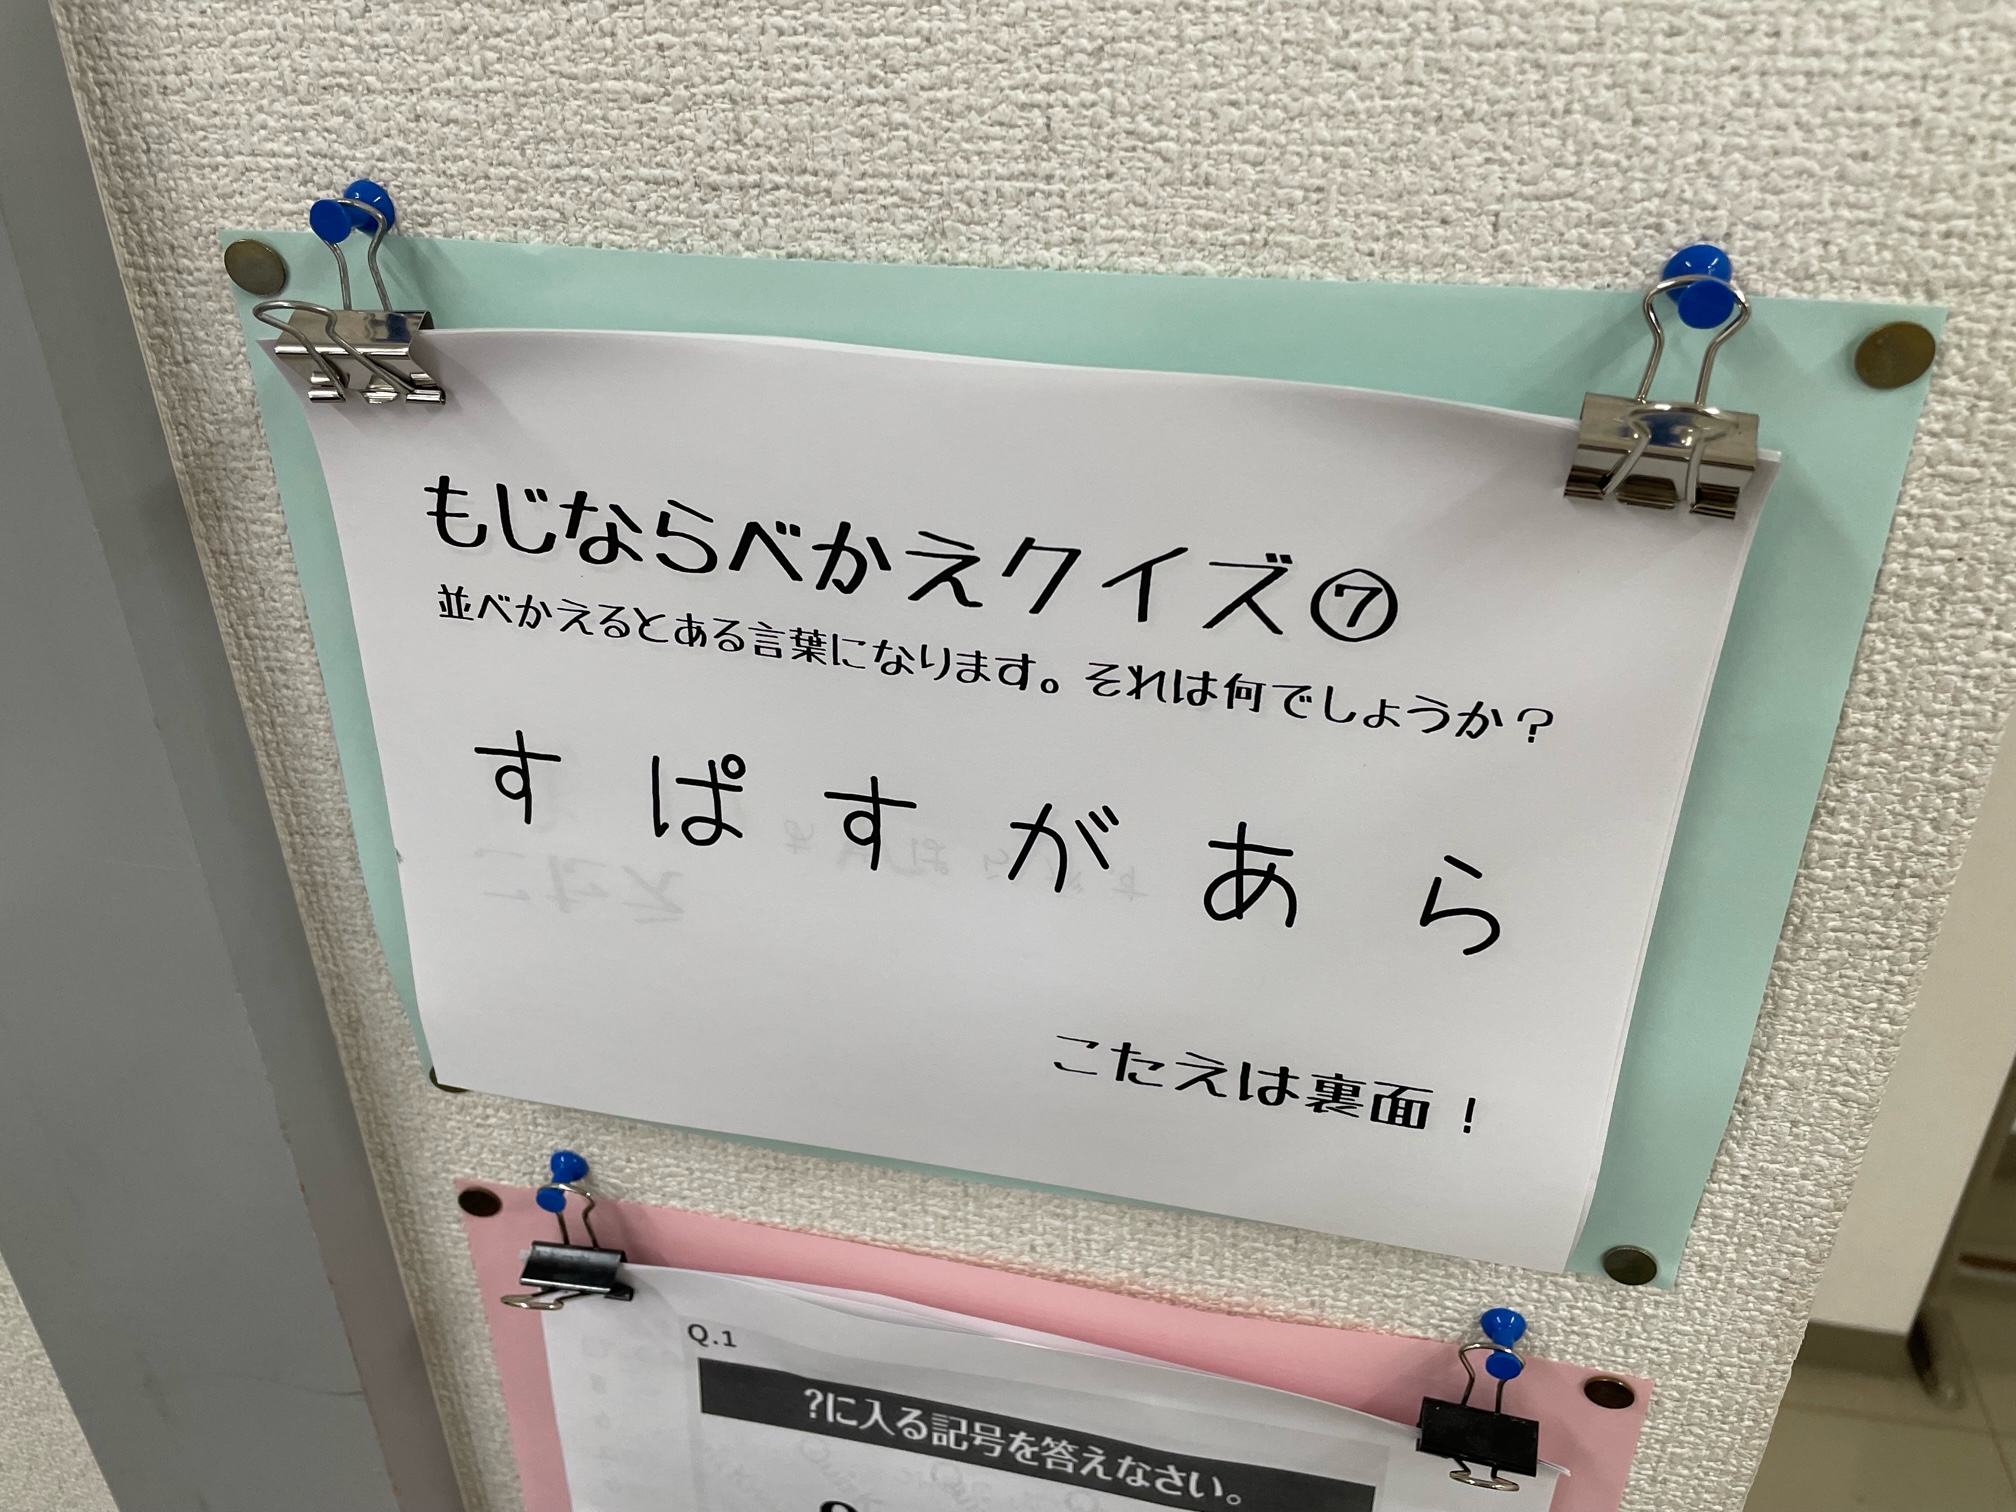 もじならべかえクイズ⑦
並べかえるとある言葉になります。それは何でしょうか？
す ぱ す が あ ら
こたえは裏面！
Q.1
?に入る記号を答えなさい。